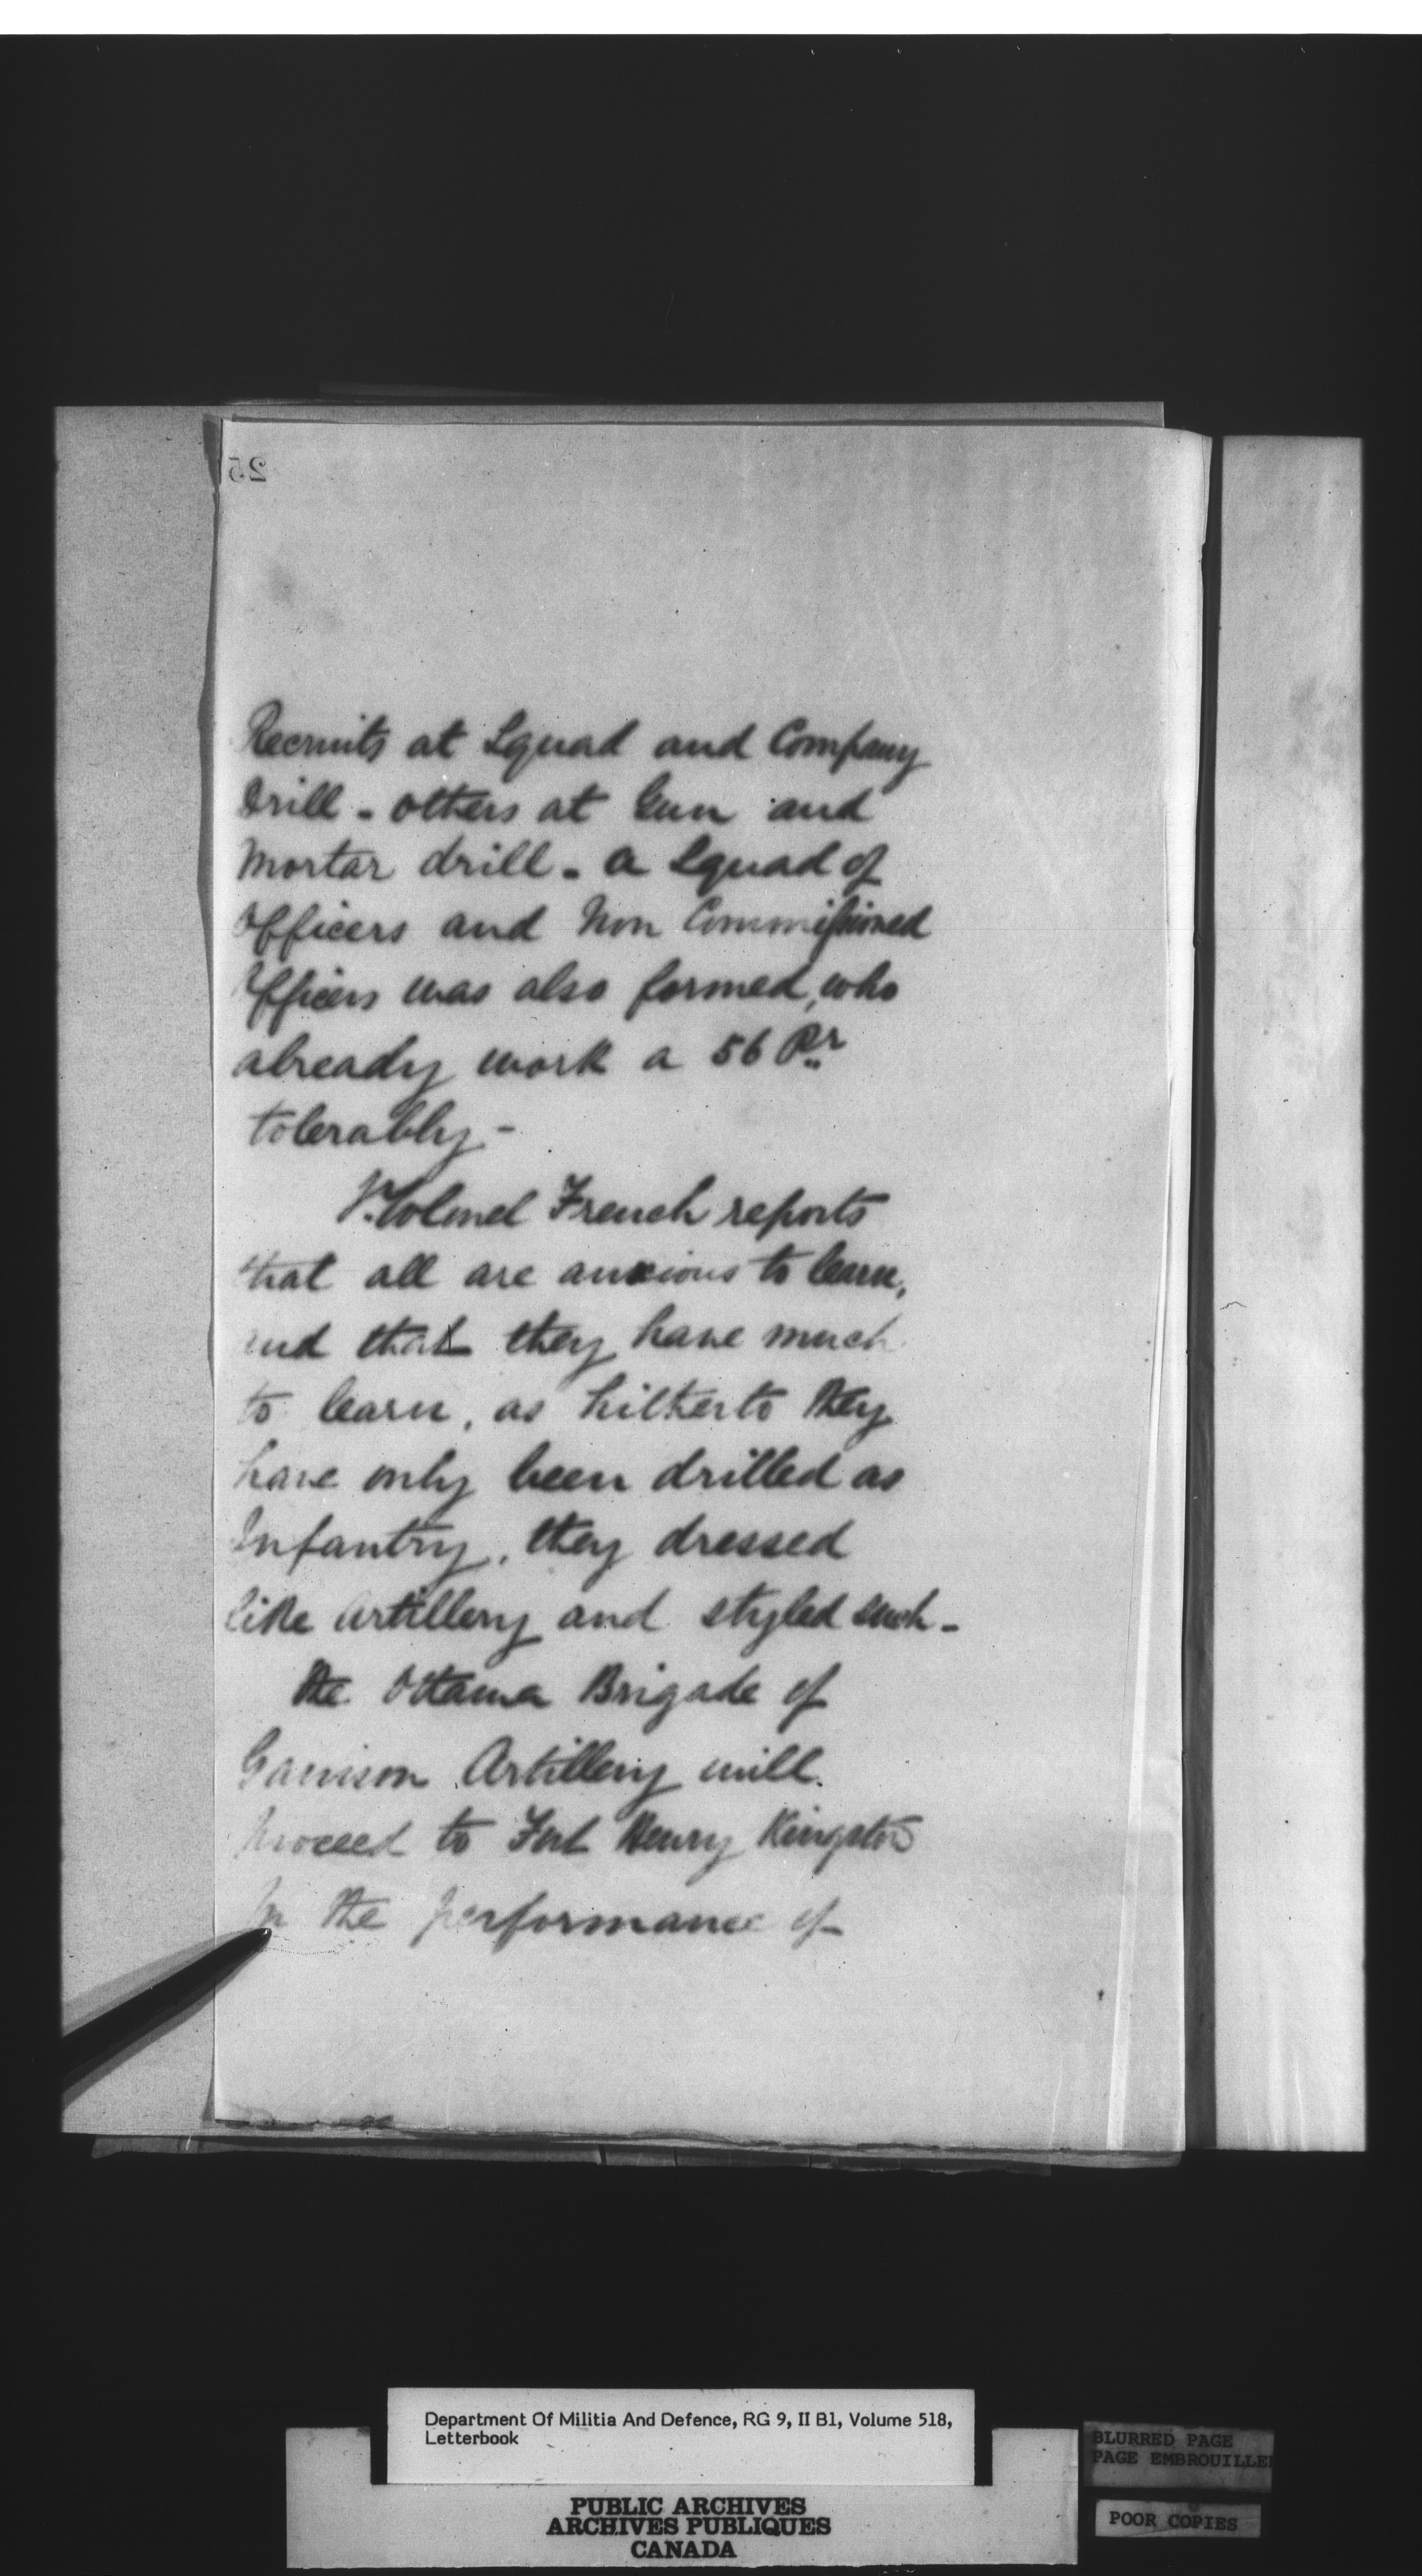 25
Recruits at Squad and Company
drill - others at Gun and
Mortar drill - a Squad of
Officers and Non Commissioned
Officers was also formed, who
already work a 56 Pr
tolerably -
Lt. Colonel French reports
that all are anxious to learn,
and that they have much
to learn, as hitherto they
have only been drilled as
Infantry, they dressed
like Artillery and styled such -
The Ottawa Brigade of
Garrison Artillery will
proceed to Fort Henry Kingston
in the performance of
Department Of Militia And Defence, RG 9, II B1, Volume 518,
Letterbook
BLURRED PAGE
PAGE EMBROUILLE
PUBLIC ARCHIVES
ARCHIVES PUBLIQUES
CANADA
POOR COPIES